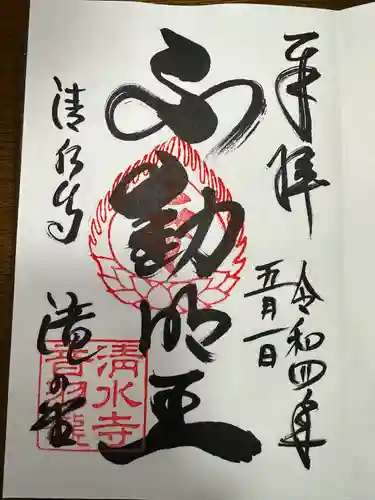 奉拝
令和四年
五月一日
不動明王
清水寺
滝の堂
清水寺
音羽瀧